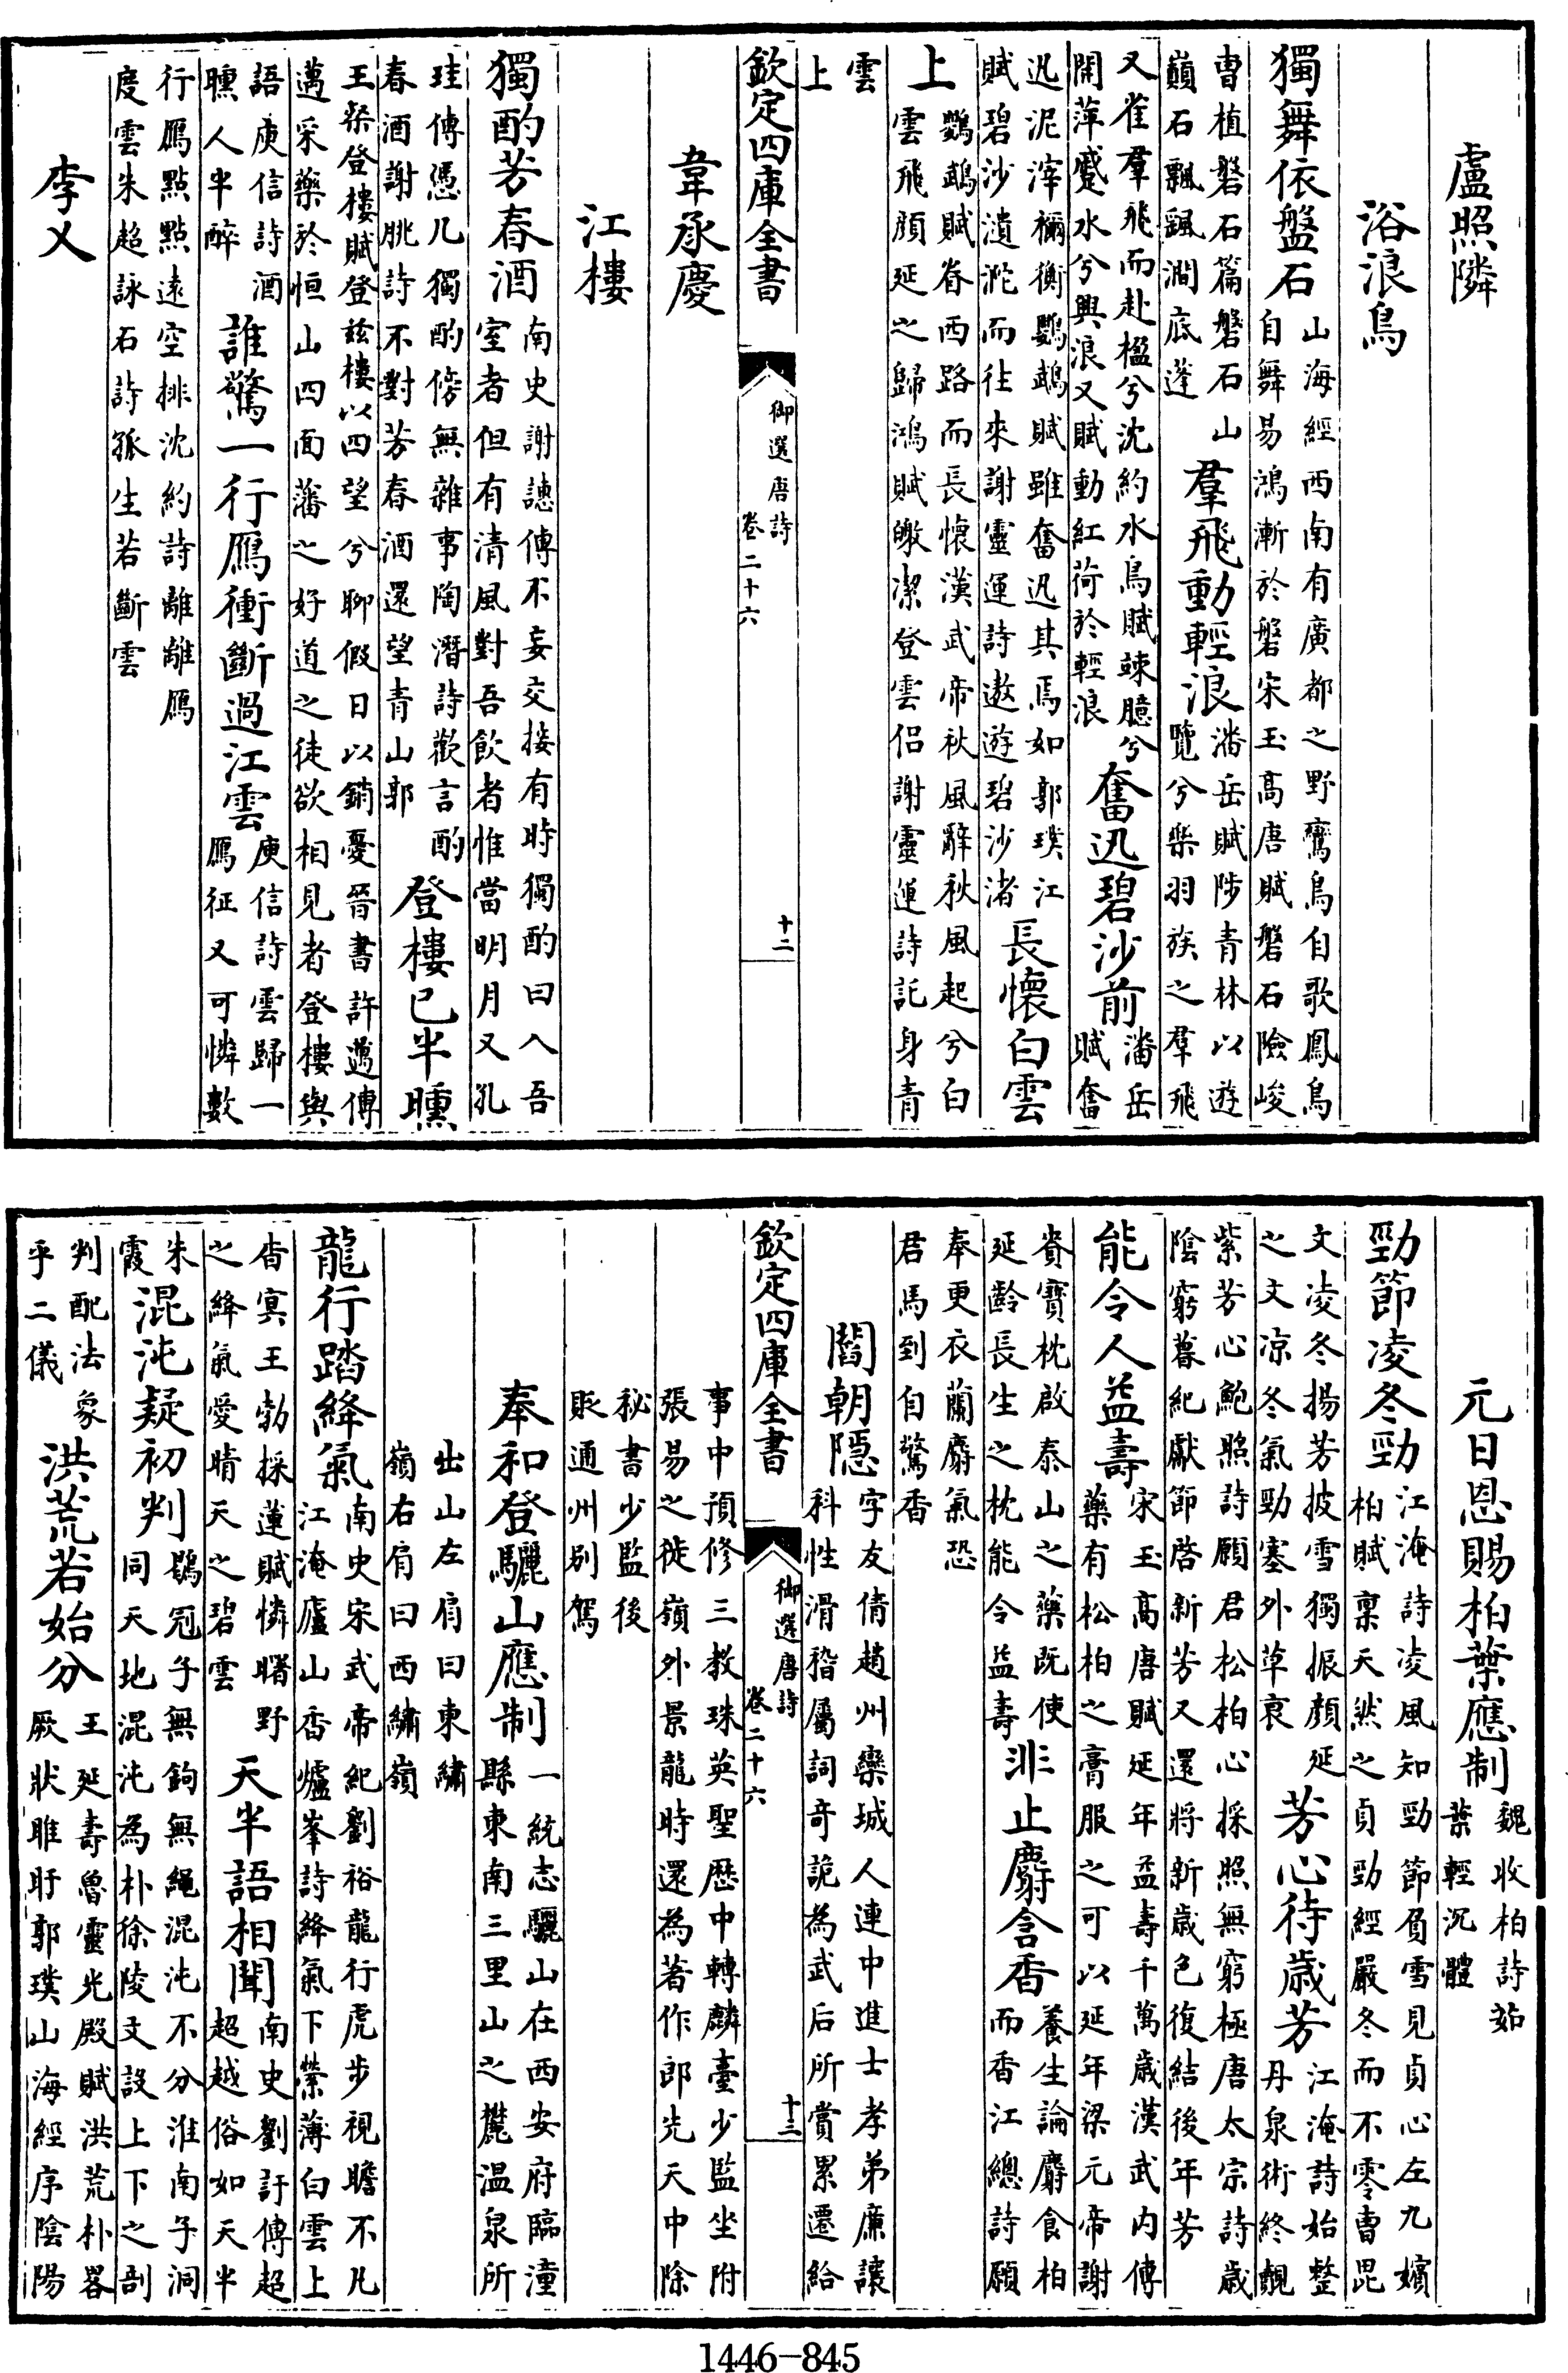 盧照隣
浴浪鳥
獨舞依盤石山海經西南有廣都之野鸞鳥自歌鳳鳥自舞易鴻漸於磐宋玉高唐賦磐石險峻
曹植磐石篇磐石山巔石飄颻澗底蓬羣飛動輕浪潘岳賦陟青林以遊覽兮樂羽族之羣飛
又雀羣飛而赴楹兮沈約水鳥賦竦臆兮開萍蹙水兮興浪又賦動紅荷於輕浪奮迅碧沙前潘岳賦奮
迅泥滓禰衡鸚鵡賦雖奮迅其焉如郭璞江賦碧沙瀢而往來謝靈運詩遨遊碧沙渚長懷白雲
上鸚鵡賦眷西路而長懷漢武帝秋風辭秋風起兮白雲飛顏延之歸鴻賦皦潔登雲侶謝靈運詩託身青
雲上
欽定四庫全書 御選唐詩 卷二十六 十二
韋承慶
江樓
獨酌芳春酒南史謝譓傳不妄交接有時獨酌曰入吾室者但有清風對吾飲者惟當明月又孔
珪傳憑几獨酌傍無雜事陶潛詩歡言酌春酒謝朓詩不對芳春酒還望青山郭登樓已半曛
王粲登樓賦登兹樓以四望兮聊假日以銷憂晉書許邁傳邁采藥於恒山四面藩之好道之徒欲相見者登樓與
語庾信詩酒曛人半醉誰驚一行鴈衝斷過江雲庾信詩雲歸一鴈征又可憐數
行鴈點點遠空排沈約詩離離鴈度雲朱超詠石詩孤生若斷雲
李乂
元日恩賜柏葉應制魏收柏詩茹葉輕沉體
勁節凌冬勁江淹詩凌風知勁節負雪見貞心左九嬪柏賦稟天然之貞勁經嚴冬而不零曹毘
文凌冬揚芳披雪獨振顏延之文凉冬氣勁塞外草衰芳心待歲芳江淹詩始整丹泉術終覿
紫芳心鮑照詩願君松柏心採照無窮極唐太宗詩歲陰窮暮紀獻節啓新芳又還將新歲色復結後年芳
能令人益壽宋玉高唐賦延年益壽千萬歲漢武內傳藥有松柏之膏服之可以延年梁元帝謝
賚寶枕啟泰山之藥既使延齡長生之枕能令益壽非止麝含香養生論麝食柏而香江總詩願
奉更衣蘭麝氣恐君馬到自驚香
閻朝隱字友倩趙州欒城人連中進士孝弟廉讓科性滑稽屬詞奇詭為武后所賞累遷給
欽定四庫全書 御選唐詩 卷二十六 十三
事中預修三教珠英聖歷中轉麟臺少監坐附張易之徙嶺外景龍時還為著作郎先天中除
秘書少監後貶通州別駕
奉和登驪山應制一統志驪山在西安府臨潼縣東南三里山之麓温泉所
出山左肩曰東繡嶺右肩曰西繡嶺
龍行踏絳氣南史宋武帝紀劉裕龍行虎步視瞻不凡江淹廬山香爐峯詩絳氣下縈薄白雲上
杳冥王勃採蓮賦憐曙野之絳氣愛晴天之碧雲天半語相聞南史劉訏傳超超越俗如天半
朱霞混沌疑初判鶡冠子無鉤無繩混沌不分淮南子洞同天地混沌為朴徐陵文設上下之剖
判配法象乎二儀洪荒若始分王延壽魯靈光殿賦洪荒朴畧厥狀睢盱郭璞山海經序陰陽
1446-845